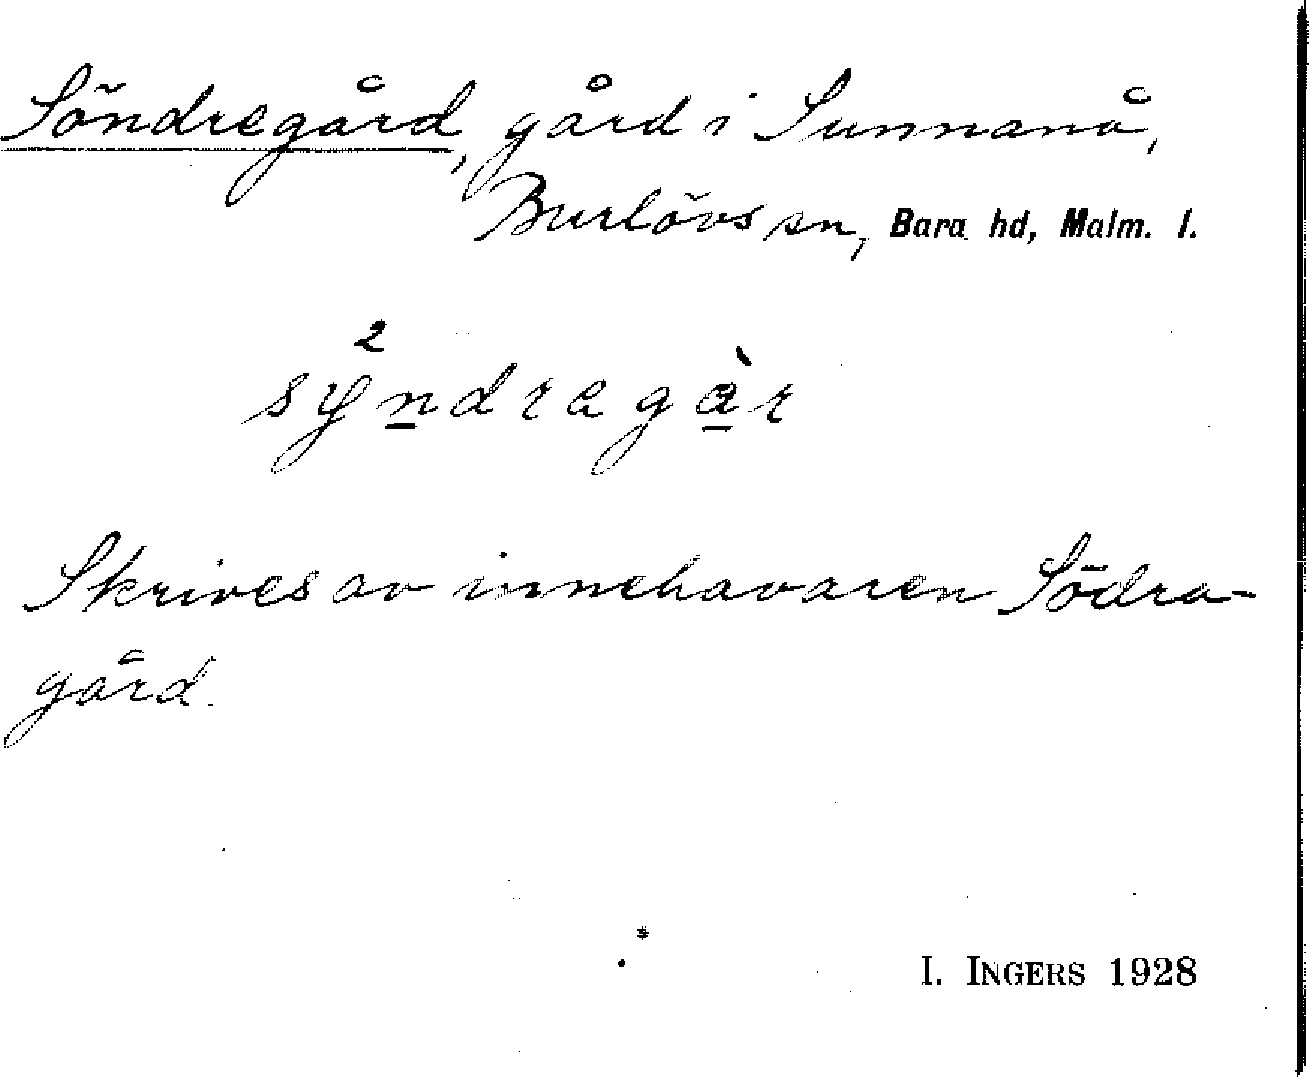 Söndregård, gård i Sunnanå,
Burlövs sn, Bara hd, Malm. l.
sy²ndragàr
Skrives av innehavaren Södra-
gård.
I. INGERS 1928